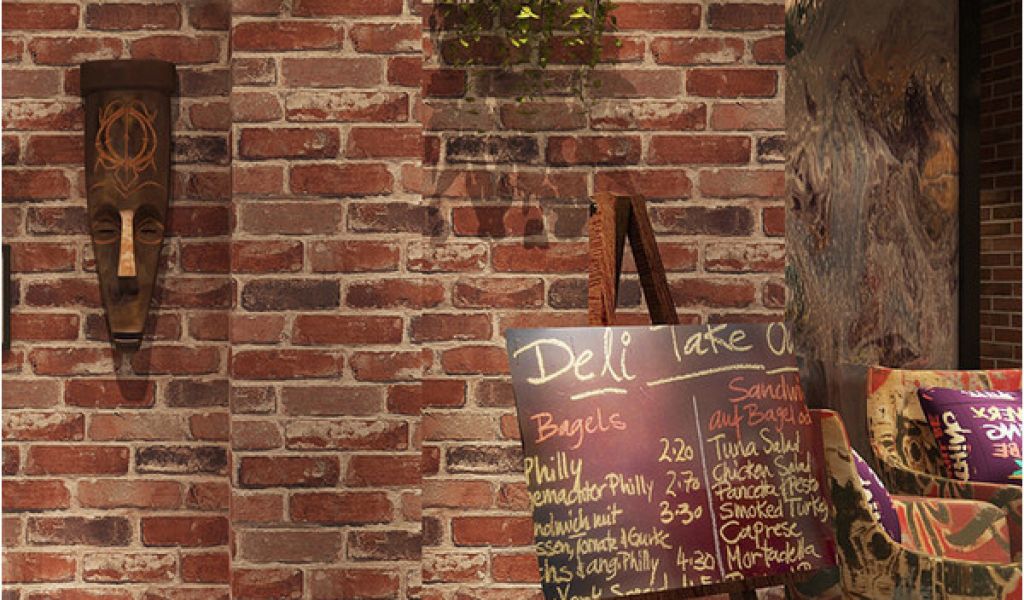 Deli Take O
Bagels
Philly 2.20
emachter Philly 2.70
ndwich mit 3.30
ssen, Tomate & Gurke
chs & angi Philly 4.30
York Spec
Sandwi
auf Bagel od
Tuna Salad
Chicken Salad
Panceta Presto
Smoked Turkey
Caprese
Mortadella